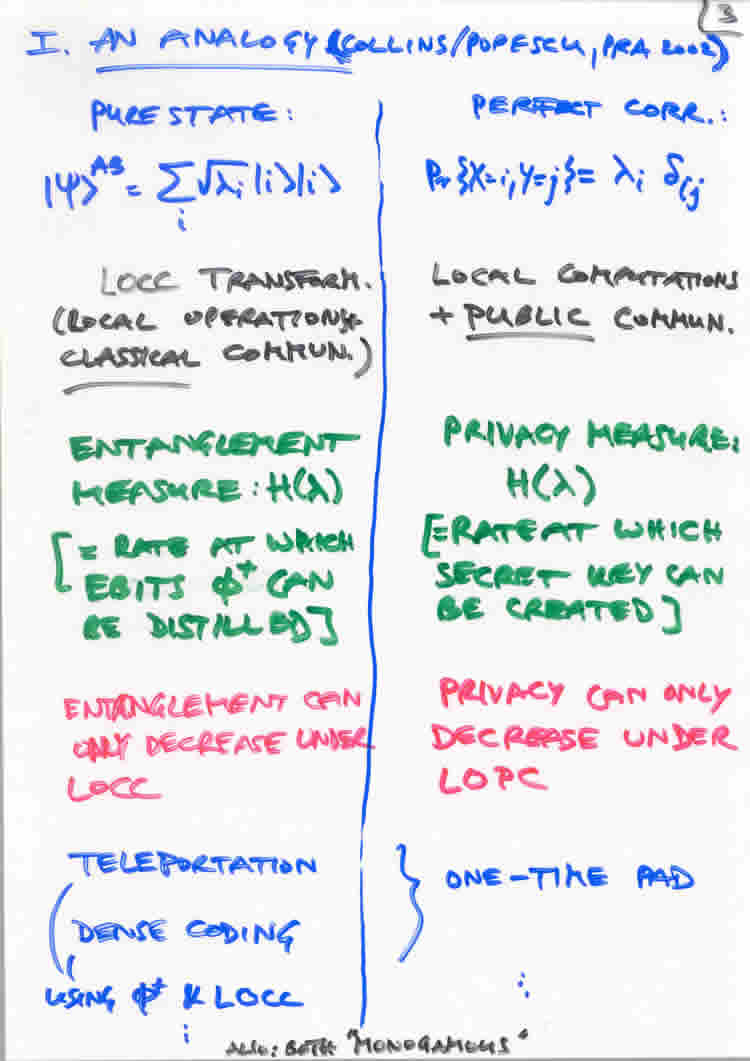 3
I. AN ANALOGY (COLLINS/POPESCU, PRA 2002)
PURE STATE:
|ψ⟩^AB = Σ_i √λ_i |i⟩|i⟩
LOCC TRANSFORM.
(LOCAL OPERATIONS+
CLASSICAL COMMUN.)
ENTANGLEMENT
MEASURE: H(λ)
[= RATE AT WHICH
EBITS ϕ⁺ CAN
BE DISTILLED]
ENTANGLEMENT CAN
ONLY DECREASE UNDER
LOCC
TELEPORTATION
DENSE CODING
USING ϕ⁺ & LOCC
⋮
PERFECT CORR.:
Pr{X=i, Y=j} = λ_i δ_ij
LOCAL COMPUTATIONS
+ PUBLIC COMMUN.
PRIVACY MEASURE:
H(λ)
[=RATE AT WHICH
SECRET KEY CAN
BE CREATED]
PRIVACY CAN ONLY
DECREASE UNDER
LOPC
} ONE-TIME PAD
⋮
ALSO: BOTH "MONOGAMOUS"